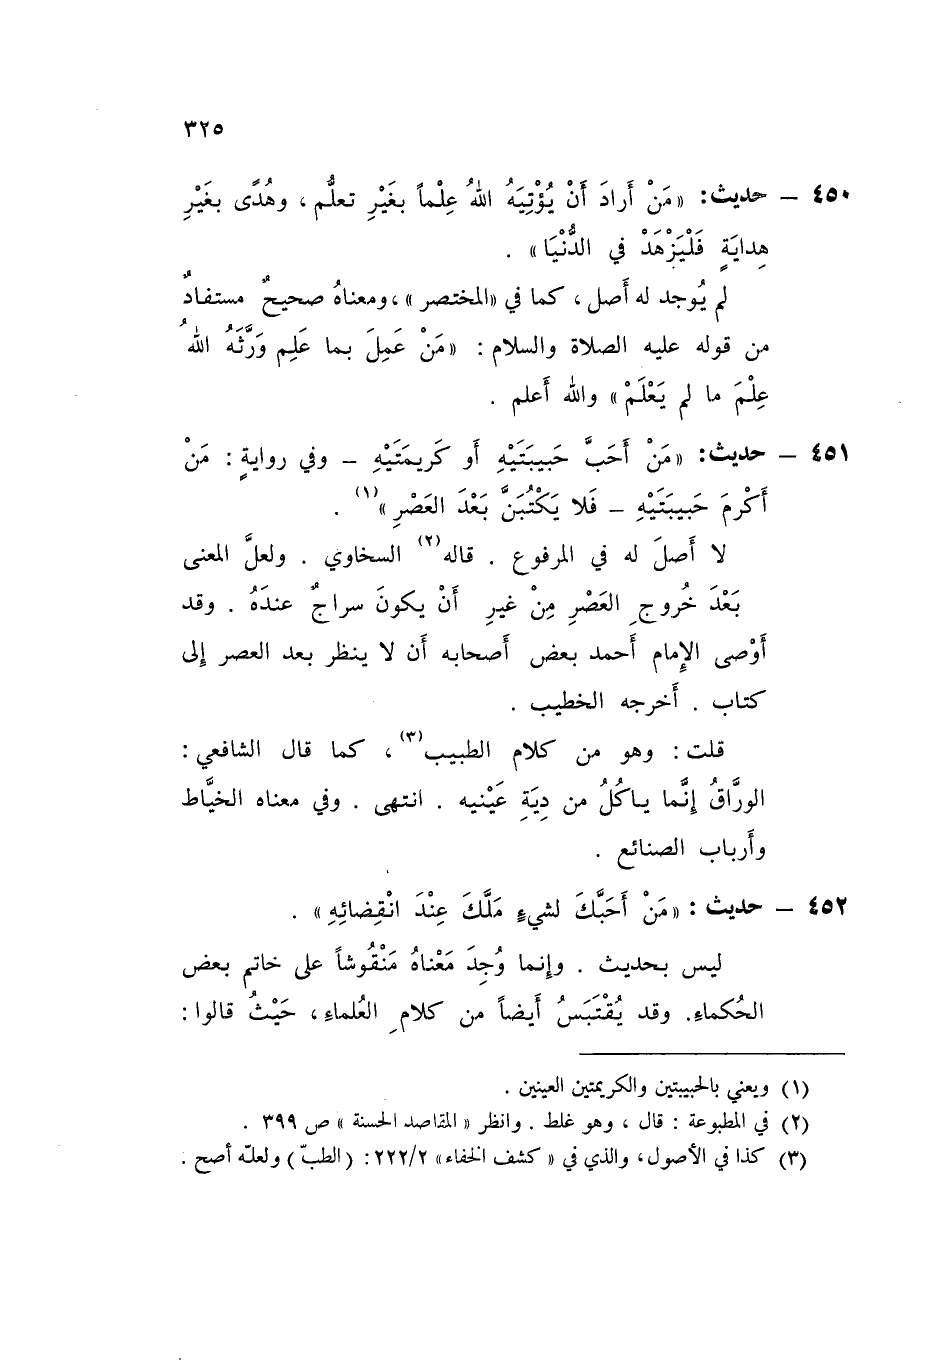 ٣٢٥
٤٥٠ - حديث: «مَنْ أَرادَ أَنْ يُؤْتِيَهُ اللهُ عِلْماً بغَيْرِ تعلُّم ، وهُدًى بغَيْرِ
هِدايَةٍ فَلْيَزْهَدْ في الدُّنْيَا» .
لم يُوجد له أَصل ، كما في «المختصر» ، ومعناهُ صحيحٌ مستفادٌ
من قوله عليه الصلاة والسلام : «مَنْ عَمِلَ بما عَلِم وَرَّثَهُ اللهُ
عِلْمَ ما لم يَعْلَمْ» والله أَعلم .
٤٥١ - حديث: «مَنْ أَحَبَّ حَبيبَتَيْهِ أَو كَريمَتَيْهِ - وفي روايةٍ : مَنْ
أَكْرمَ حَبيبَتَيْهِ - فَلا يَكْتُبَنَّ بَعْدَ العَصْرِ»(١) .
لا أَصلَ له في المرفوع . قاله(٢) السخاوي . ولعلَّ المعنى
بَعْدَ خُروجِ العَصْرِ مِنْ غيرِ أَنْ يكونَ سراجٌ عندَهُ . وقد
أَوْصى الإِمام أَحمد بعض أَصحابه أَن لا ينظر بعد العصر إِلى
كتاب . أَخرجه الخطيب .
قلت : وهو من كلام الطبيب(٣) ، كما قال الشافعي :
الورَّاقُ إِنَّما ياكُلُ من دِيَةِ عَيْنيه . انتهى . وفي معناه الخيَّاط
وأَرباب الصنائع .
٤٥٢ - حديث : «مَنْ أَحَبَّكَ لشيءٍ مَلَّكَ عِنْدَ انْقِضائِهِ» .
ليس بحديث . وإِنما وُجِدَ مَعْناهُ مَنْقُوشاً على خاتم بعض
الحُكماءِ. وقد يُقْتَبَسُ أَيضاً من كلامِ العُلماءِ ، حَيْثُ قالوا :
(١) ويعني بالحبيبتين والكريمتين العينين .
(٢) في المطبوعة : قال ، وهو غلط . وانظر «المقاصد الحسنة» ص ٣٩٩ .
(٣) كذا في الأصول، والذي في «كشف الخفاء» ٢٢٢/٢: (الطبّ) ولعلّه أصح .